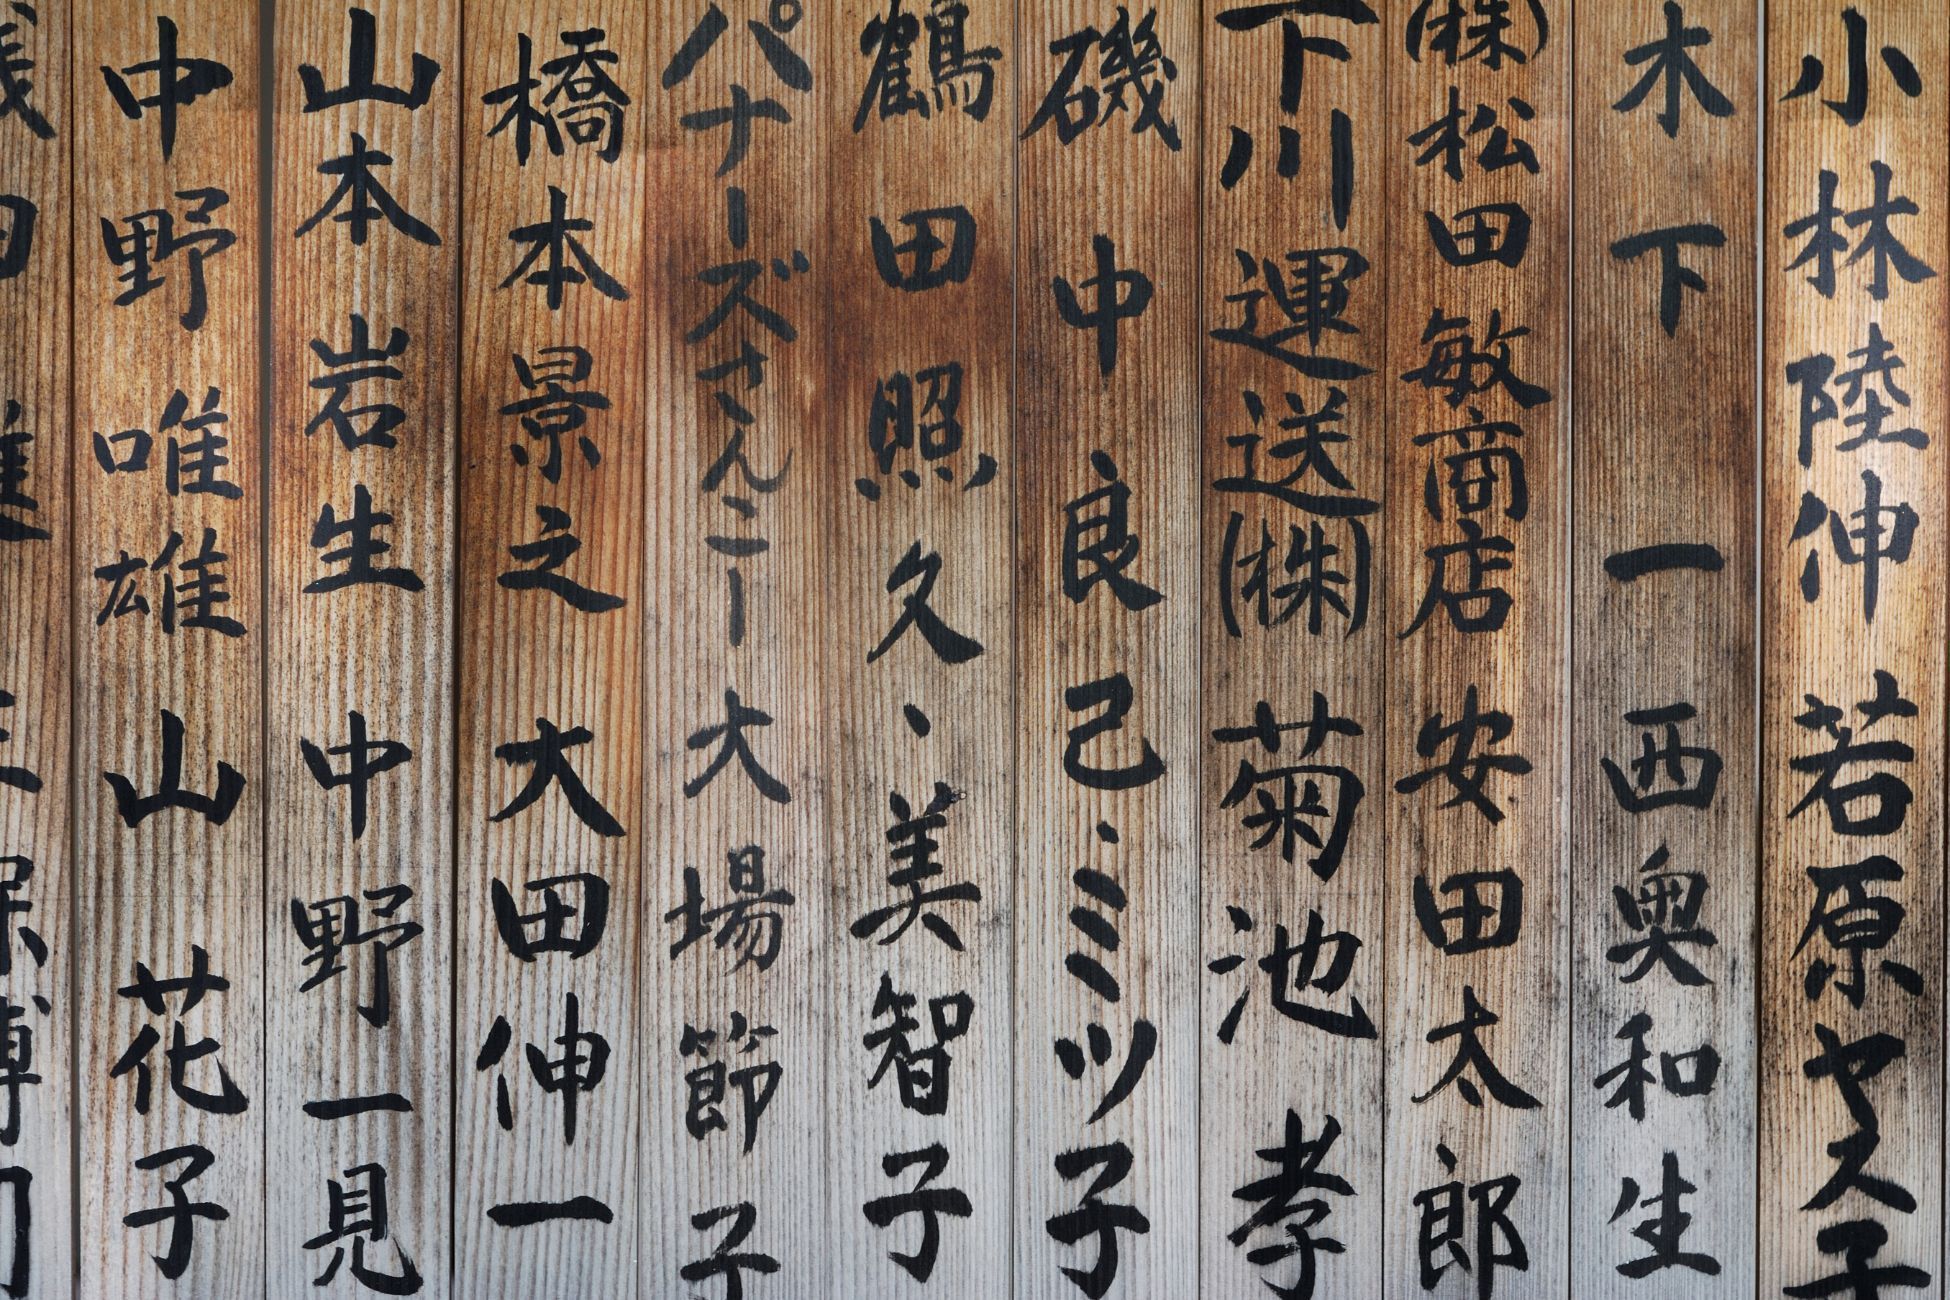 小林陸伸 若原ヤス子
木下 一 西奥和生
(株)松田敏商店 安田太郎
下川運送(株) 菊池 孝
磯中良己・ミツ子
鶴田照久、美智子
パナーズさんこー 大場節子
橋本景之 大田伸一
山本岩生 中野一見
中野唯雄 山花子